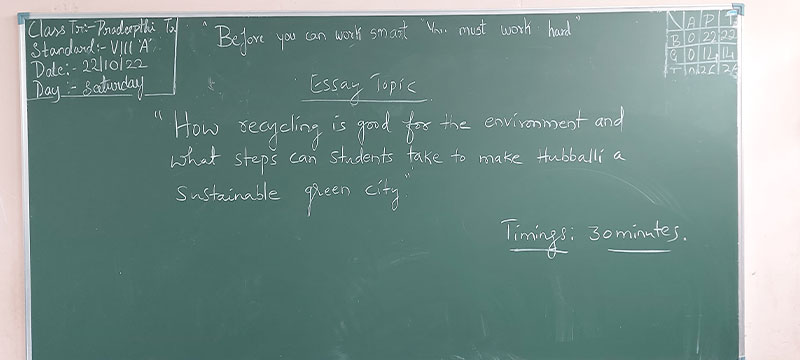 Class Tr:- Pradeepthi Tr
Standard:- VIII 'A'
Date:- 22/10/22
Day:- Saturday
"Before you can work smart You must work hard"
A P T
B 0 22 22
G 0 14 14
T 0 26 26
Essay Topic
"How recycling is good for the environment and
what steps can students take to make Hubballi a
Sustainable green city"
Timings: 30 minutes.